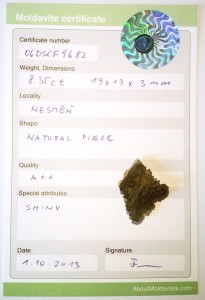 Moldavite certificate
Certificate number
06DSCF9682
Weight, Dimensions
8.35ct 19x17x3mm
Locality
NESMĚŇ
Shape
NATURAL PIECE
Quality
A++
Special attributes
SHINY
Date
Signature
1.10.2013
AboutMoldavite.com